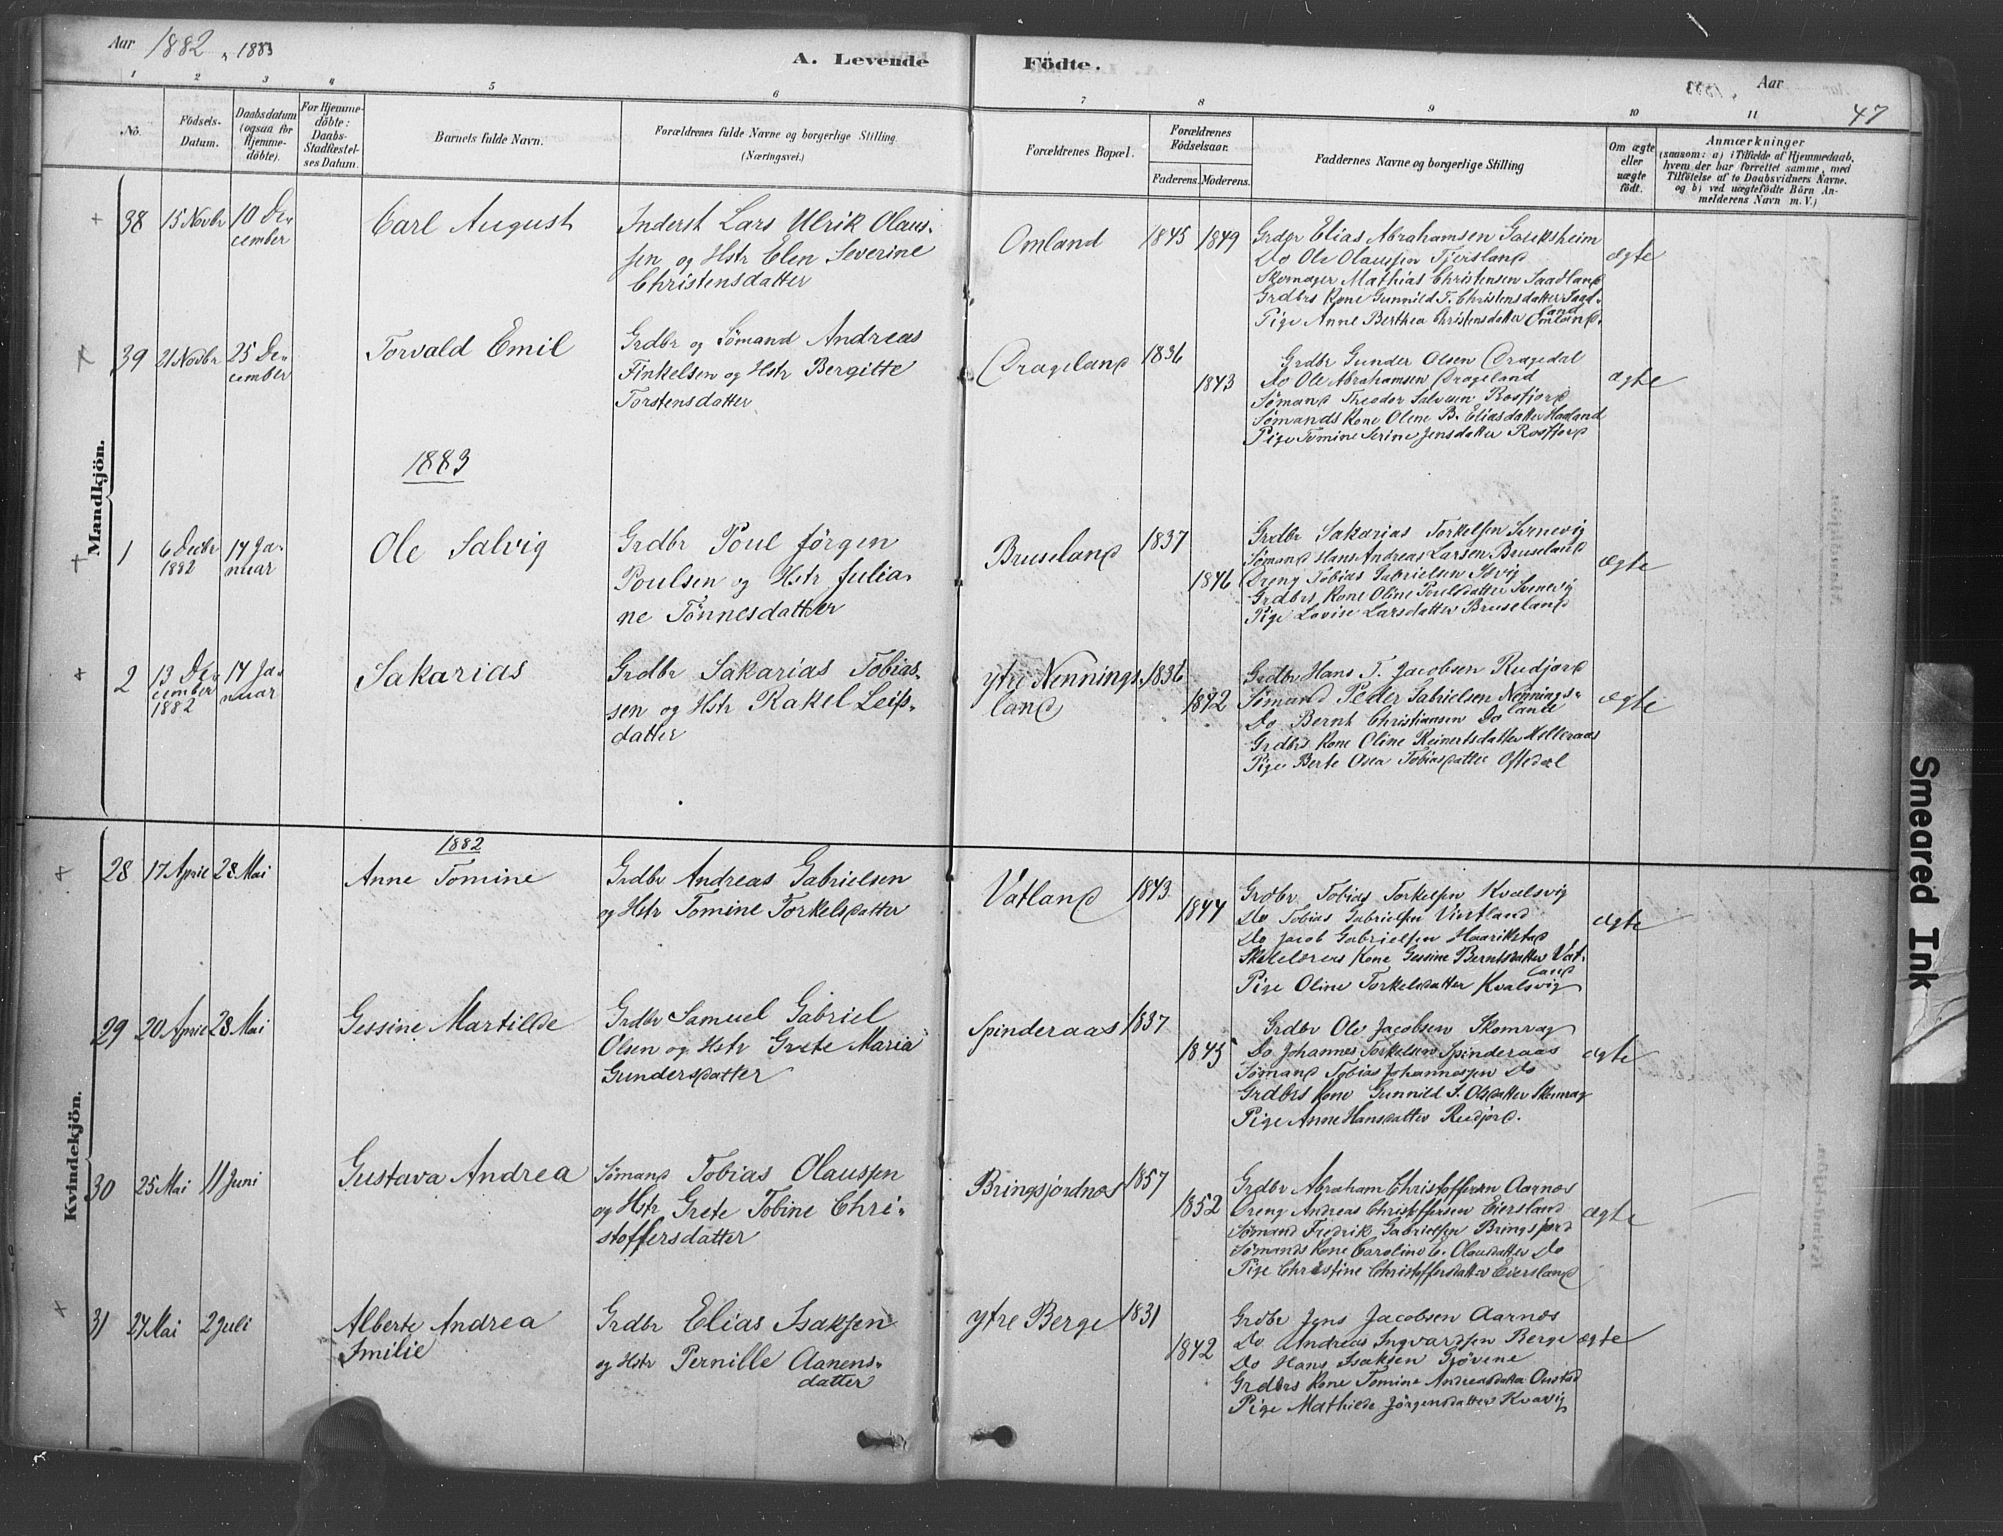 Aar 1882, 1883
A. Levende Födte.
Aar
47
1 2 3 4 5 6 7 8 9 10 11
No.
Födsels-Datum.
Daabsdatum (ogsaa for Hjemme-döbte).
For Hjemme-döbte: Daabs-Stadfæstel-ses Datum.
Barnets fulde Navn.
Forældrenes fulde Navne og borgerlige Stilling. (Næringsvei.)
Forældrenes Bopæl.
Forældrenes Födselsaar.
Faderens. Moderens.
Faddernes Navne og borgerlige Stilling
Om ægte eller uægte födt.
Anmærkninger
(saasom: a) i Tilfælde af Hjemmedaab,
hvem der har forrettet samme, med
Tilföielse af to Daabsvidners Navne.
og b) ved uægtefödte Börn An-
melderens Navn m. V.)
Mandkjön.
38 15 Novbr 10 De-
cember
Carl August
Inderst Lars Ulrik Olaus-
sen og Hstr Elen Severine
Christensdatter
Omland 1845 1849
Grdbr Elias Abrahamsen
Do Ole Olaussen Tjersland
Skomager Mathias Christensen Saadland
Grdbrs Kone Gunnild T. Christensdatter Saad-
land
Pige Anne Berthea Christensdatter Omland.
ægte
39 21 Novbr 25 De-
cember
Torvald Emil
Grdbr og Sømand Andreas
Finkelsen og Hstr Bergitte
Torstensdatter
Drageland 1836
1843
Grdbr Gunder Olsen Dragedal
Do Ole Abrahamsen Drageland
Sømand Theodor Salvesen Rosfjord
Sømands Kone Olene B. Eliasdatter Haaland
Pige Tomine Serine Jensdatter Rosfjord
ægte
1883
1 6 Decbr
1882
14 Ja-
nuar
Ole Salvig
Grdbr Poul Jörgen
Poulsen og Hstr Julia-
ne Tönnesdatter
Bruseland 1837
1846
Grdbr Sakarias Torkelsen Svenevig
Sømand Hans Andreas Larsen Bruseland
Dreng Tobias Gabrielsen
Grdbrs Kone Oline Poulsdatter Svenevig
Pige Lovise Larsdatter Bruseland
ægte
2 13 De-
cember
1882
14 Ja-
nuar
Sakarias
Grdbr Sakarias Tobias-
sen og Hstr Rakel Leifs-
datter
ytre Nennings-
land
1836
1842
Grdbr Hans T. Jacobsen Rudjord
Sømand Peder Gabrielsen Nennings-
land
Do Bernt Christiansen Do
Grdbrs Kone Oline Reinertsdatter Helleraas
Pige Berte Osea Tobiasdatter Oftedal
ægte
Kvindekjön.
1882
28 17 April 28 Mai
Anne Tomine
Grdbr Andreas Gabrielsen
og Hstr Tomine Torkelsdatter
Vatland 1843
1844
Grdbr Tobias Torkelsen Kvalsvig
Do Tobias Gabrielsen
Do Jacob Gabrielsen Haarikstad
Skolelærers Kone Gessine Berntsdatter Vat-
land
Pige Oline Torkelsdatter Kvalsvig
ægte
29 20 April 28 Mai
Gessine Martilde
Grdbr Samuel Gabriel
Olsen og Hstr Grete Maria
Gundersdatter
Spinderaas 1837
1845
Grdbr Ole Jacobsen Skomrag
Do Johannes Torkelsen Spinderaas
Sømand Tobias Johannessen Do
Grdbrs Kone Gunnild S. Olsdatter Skomrag
Pige Anne Hansdatter Rudjord.
ægte
30 25 Mai 11 Juni
Gustava Andrea
Sømand Tobias Olaussen
og Hstr Grete Tobine Chri-
stoffersdatter
Bringsjordnes 1857
1852
Grdbr Abraham Christoffersen Aarnes
Dreng Andreas Christoffersen Eiersland
Sømand Fredrik Gabrielsen Bringsjord
Sømands Kone Caroline E. Olausdatter Do
Pige Christine Christoffersdatter Eiersland
ægte
31 27 Mai 2 Juli
Alberte Andrea
Emilie
Grdbr Elias Isaksen
og Hstr Pernille Aanens-
datter
ytre Berge 1831
1842
Grdbr Jens Jacobsen Aarnes
Do Andreas Ingvardsen Berge
Do Hans Isaksen Gjövene
Grdbrs Kone Tomine Andreasdatter Onstad
Pige Mathilde Jörgensdatter Kvavig
ægte
Smeared Ink